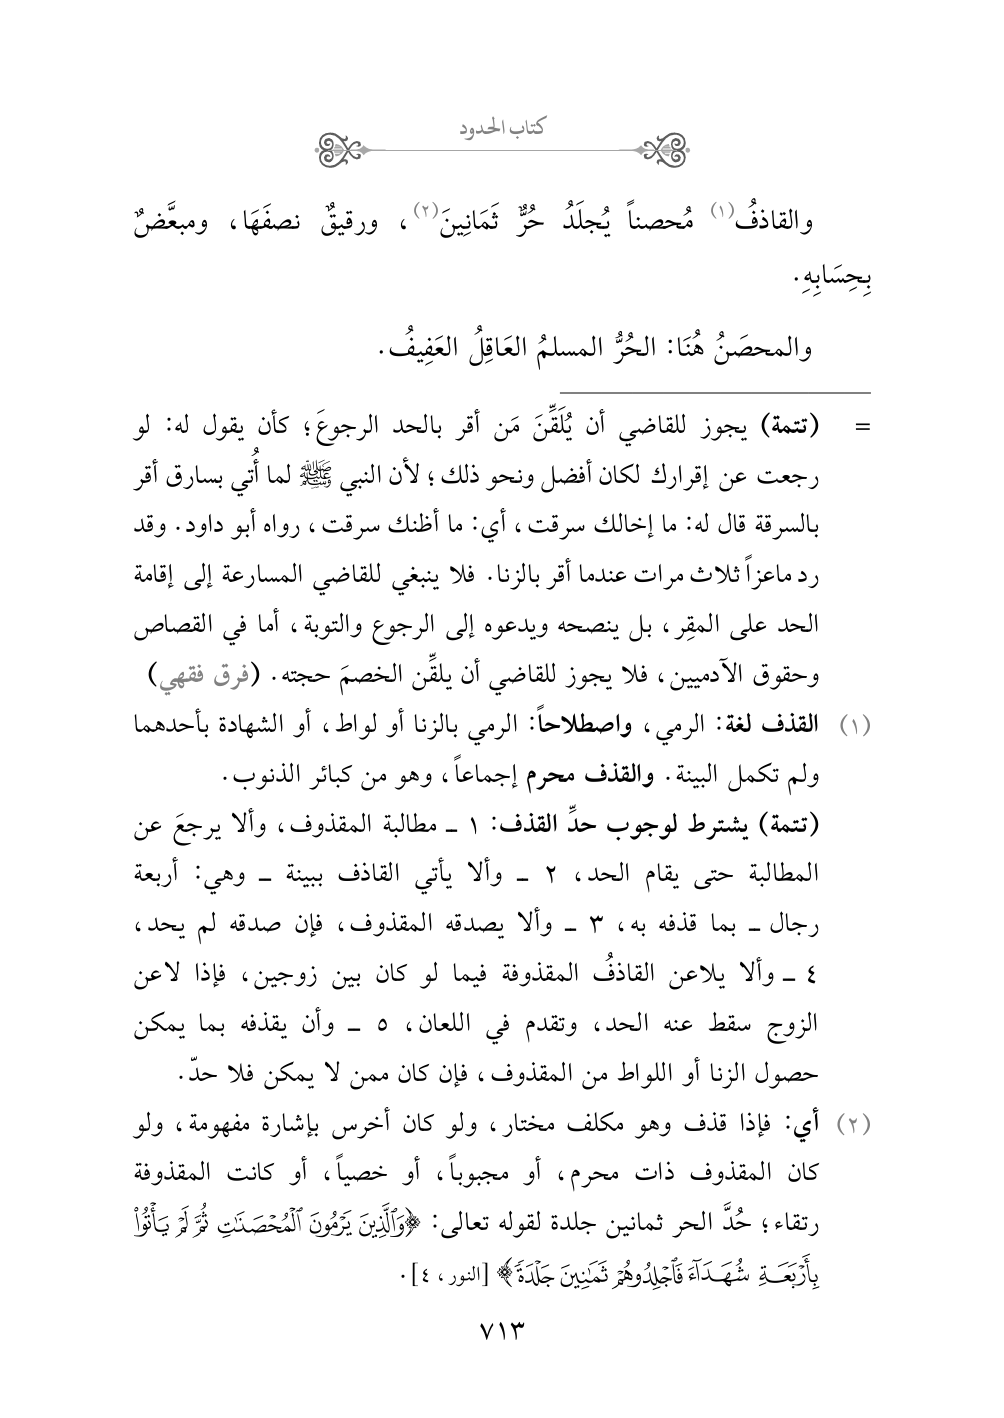 كتاب الحدود
والقاذفُ(١) مُحصناً يُجلَدُ حُرٌّ ثَمَانِينَ(٢)، ورقيقٌ نصفَهَا، ومبعَّضٌ
بِحِسَابِهِ.
والمحصَنُ هُنَا: الحُرُّ المسلمُ العَاقِلُ العَفِيفُ.
= (تتمة) يجوز للقاضي أن يُلَقِّنَ مَن أقر بالحد الرجوعَ؛ كأن يقول له: لو
رجعت عن إقرارك لكان أفضل ونحو ذلك؛ لأن النبي ﷺ لما أُتي بسارق أقر
بالسرقة قال له: ما إخالك سرقت، أي: ما أظنك سرقت، رواه أبو داود. وقد
رد ماعزاً ثلاث مرات عندما أقر بالزنا. فلا ينبغي للقاضي المسارعة إلى إقامة
الحد على المقِر، بل ينصحه ويدعوه إلى الرجوع والتوبة، أما في القصاص
وحقوق الآدميين، فلا يجوز للقاضي أن يلقِّن الخصمَ حجته. (فرق فقهي)
(١) القذف لغة: الرمي، واصطلاحاً: الرمي بالزنا أو لواط، أو الشهادة بأحدهما
ولم تكمل البينة. والقذف محرم إجماعاً، وهو من كبائر الذنوب.
(تتمة) يشترط لوجوب حدِّ القذف: ١ ـ مطالبة المقذوف، وألا يرجعَ عن
المطالبة حتى يقام الحد، ٢ ـ وألا يأتي القاذف ببينة ـ وهي: أربعة
رجال ـ بما قذفه به، ٣ ـ وألا يصدقه المقذوف، فإن صدقه لم يحد،
٤ ـ وألا يلاعن القاذفُ المقذوفة فيما لو كان بين زوجين، فإذا لاعن
الزوج سقط عنه الحد، وتقدم في اللعان، ٥ ـ وأن يقذفه بما يمكن
حصول الزنا أو اللواط من المقذوف، فإن كان ممن لا يمكن فلا حدّ.
(٢) أي: فإذا قذف وهو مكلف مختار، ولو كان أخرس بإشارة مفهومة، ولو
كان المقذوف ذات محرم، أو مجبوباً، أو خصياً، أو كانت المقذوفة
رتقاء؛ حُدَّ الحر ثمانين جلدة لقوله تعالى: ﴿وَٱلَّذِينَ يَرۡمُونَ ٱلۡمُحۡصَنَٰتِ ثُمَّ لَمۡ يَأۡتُواْ
بِأَرۡبَعَةِ شُهَدَآءَ فَٱجۡلِدُوهُمۡ ثَمَٰنِينَ جَلۡدَةٗ﴾ [النور، ٤].
٧١٣